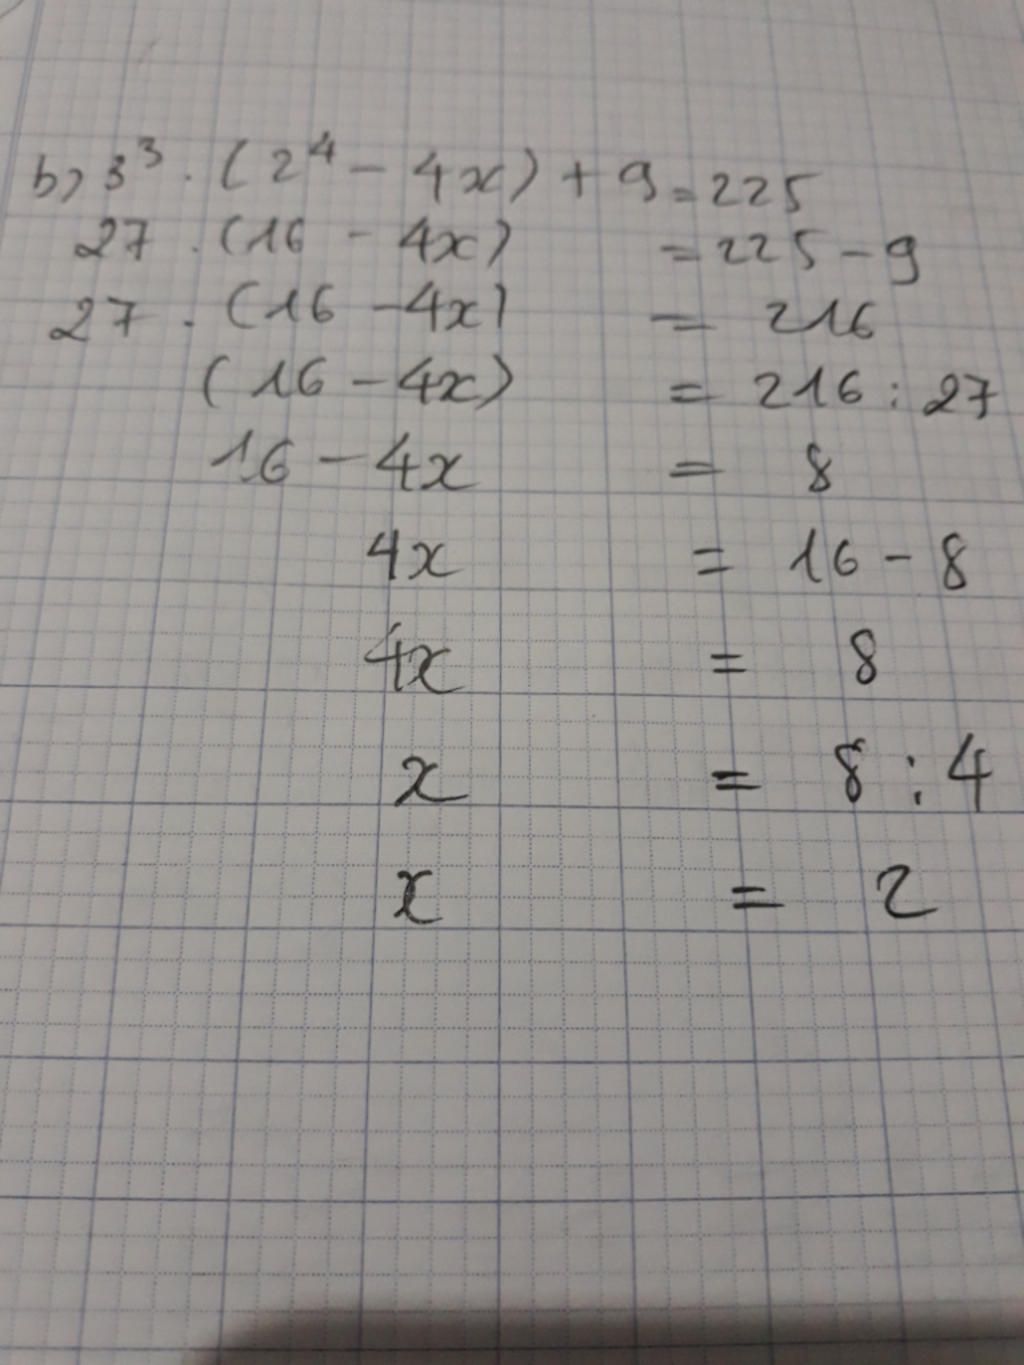 b) 3³ . (2⁴ - 4x) + 9 = 225
27 . (16 - 4x) = 225 - 9
27 . (16 - 4x) = 216
(16 - 4x) = 216 : 27
16 - 4x = 8
4x = 16 - 8
4x = 8
x = 8 : 4
x = 2